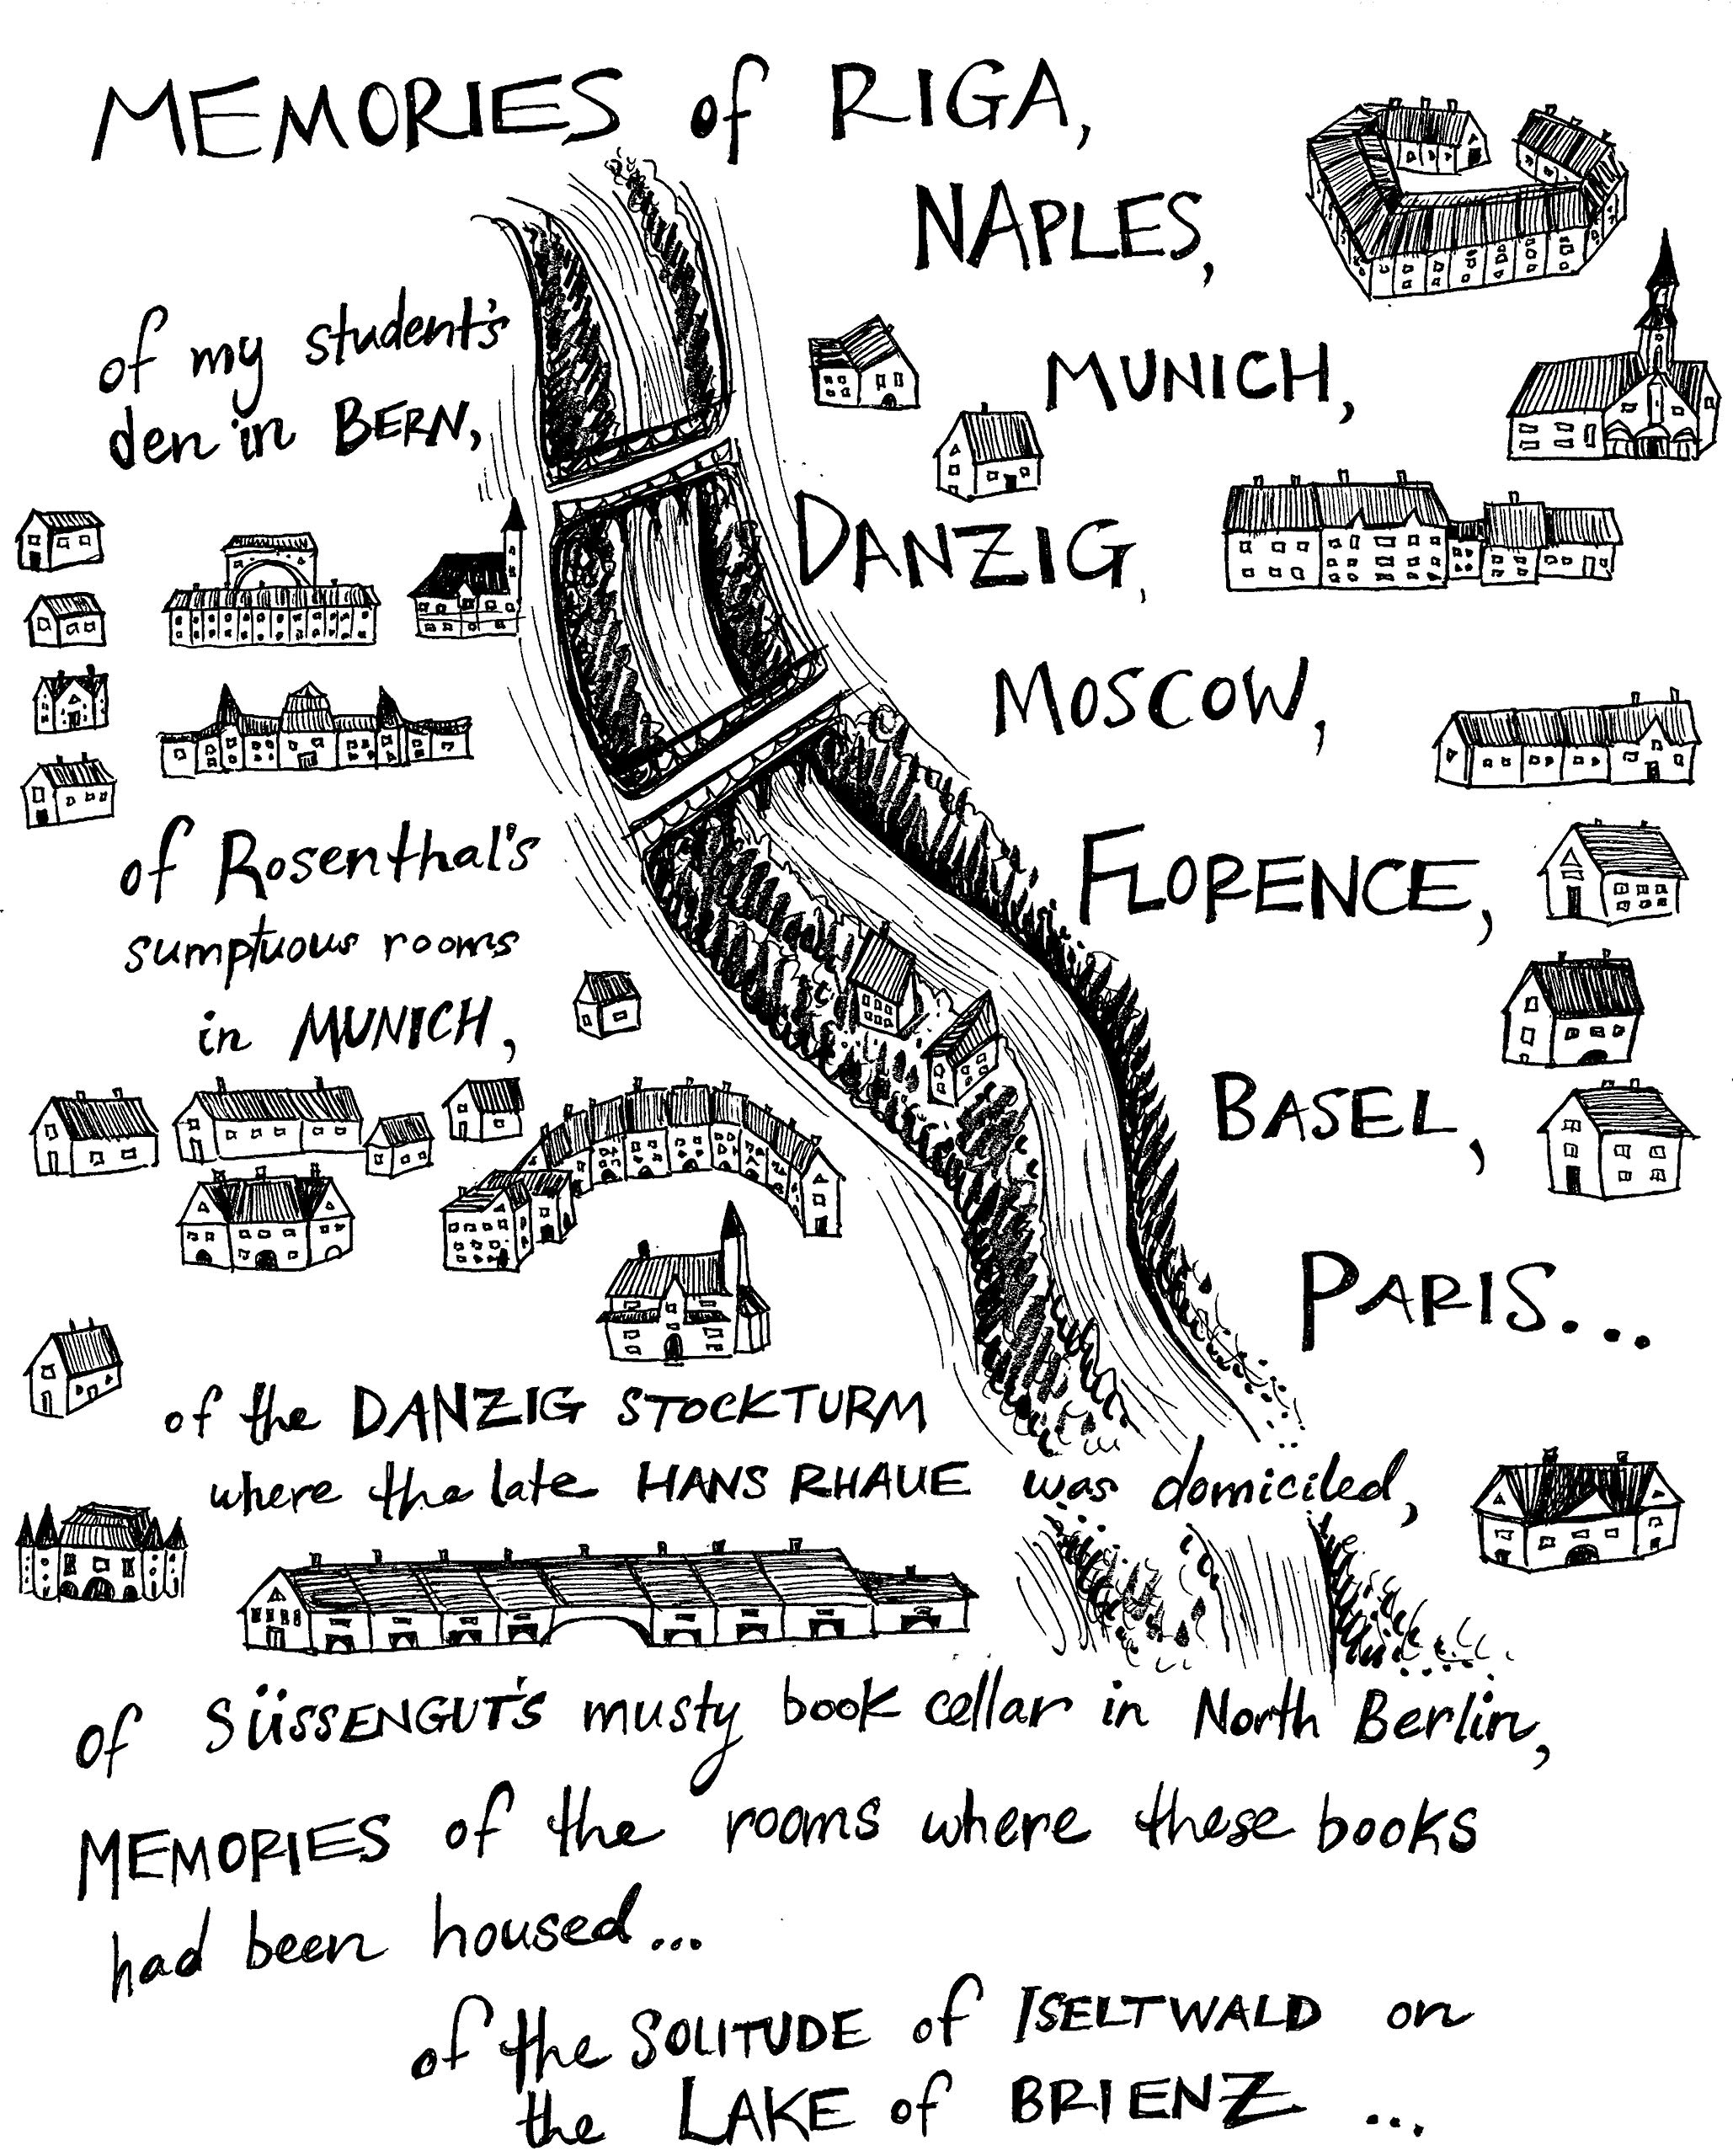 MEMORIES of RIGA,
NAPLES,
MUNICH,
DANZIG,
MOSCOW,
FLORENCE,
BASEL,
PARIS...
of my student's
den in BERN,
of Rosenthal's
sumptuous rooms
in MUNICH,
of the DANZIG STOCKTURM
where the late HANS RHAUE was domiciled,
of SüSSENGUT'S musty book cellar in North Berlin,
MEMORIES of the rooms where these books
had been housed...
of the SOLITUDE of ISELTWALD on
the LAKE of BRIENZ ...